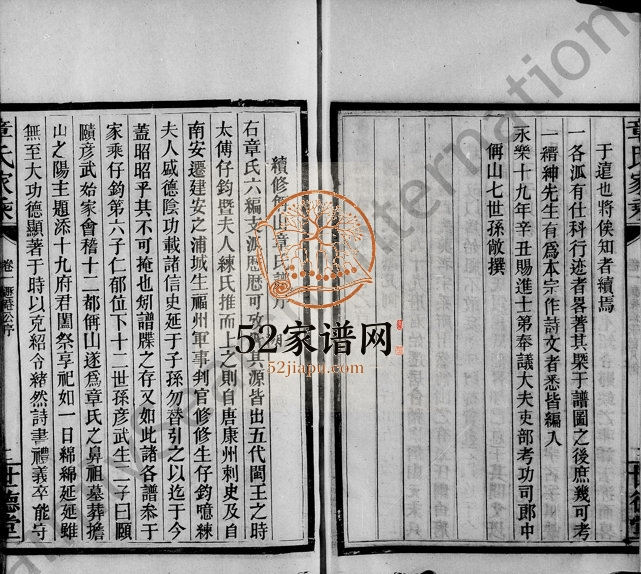 于蘧也將俟知者續焉
一各派有仕科行迹者畧著其槩于譜圖之後庶幾可考
一縉紳先生有爲本宗作詩文者悉皆編入
永樂十九年辛丑賜進士第奉議大夫吏部考功司郎中
偁山七世孫敞撰
章氏家乘
續修偁山章氏譜序
右章氏六編支派歷歷可攷其源皆出五代閩王之時
太傅仔鈞暨夫人練氏推而上之則自唐康州刺史及自
南安遷建安之浦城生福州軍事判官修修生仔鈞噫練
夫人盛德陰功載諸信史延于子孫勿替引之以迄于今
蓋昭昭乎其不可掩也矧譜牒之存又如此諸各譜叅于
家乘仔鈞第六子仁郁位下十二世孫彦武生二子曰頤
賾彦武始家會稽十二都偁山遂爲章氏之鼻祖墓葬擔
山之陽主題添十九府君闔祭享祀如一日綿綿延延雖
無至大功德顯著于時以克紹令緒然詩書禮義卒能守
章氏家乘
卷一
舊序
世德堂
52家谱网
52jiapu.com